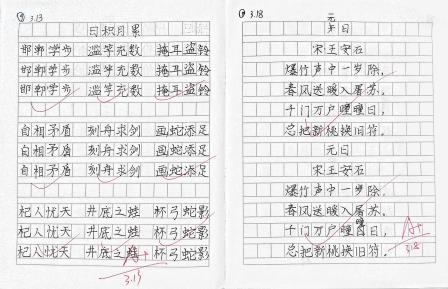 3.13
日积月累
邯郸学步 滥竽充数 掩耳盗铃
邯郸学步 滥竽充数 掩耳盗铃
邯郸学步 滥竽充数 掩耳盗铃
自相矛盾 刻舟求剑 画蛇添足
自相矛盾 刻舟求剑 画蛇添足
自相矛盾 刻舟求剑 画蛇添足
杞人忧天 井底之蛙 杯弓蛇影
杞人忧天 井底之蛙 杯弓蛇影
杞人忧天 井底之蛙 杯弓蛇影
A+
3.13
3.18
元日
宋王安石
爆竹声中一岁除，
春风送暖入屠苏。
千门万户瞳瞳日，
总把新桃换旧符。
元日
宋王安石
爆竹声中一岁除，
春风送暖入屠苏。
千门万户曈曈日，
总把新桃换旧符。
A+
3.18